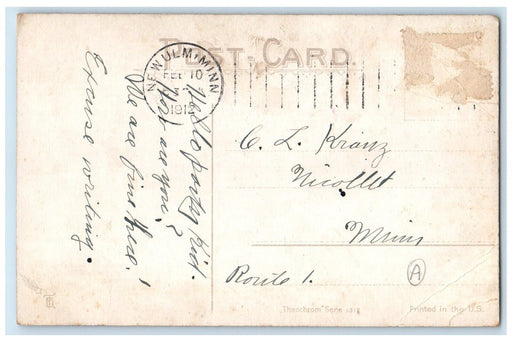 POST CARD.
NEW ULM, MINN
FEB 10
191
Hello party Kid.
How are you?
We are fine here!
Excuse writing.
C. L. Kranz
Nicollet
Minn
Route 1.
A
"Theochrom" Serie
Printed in the U.S.